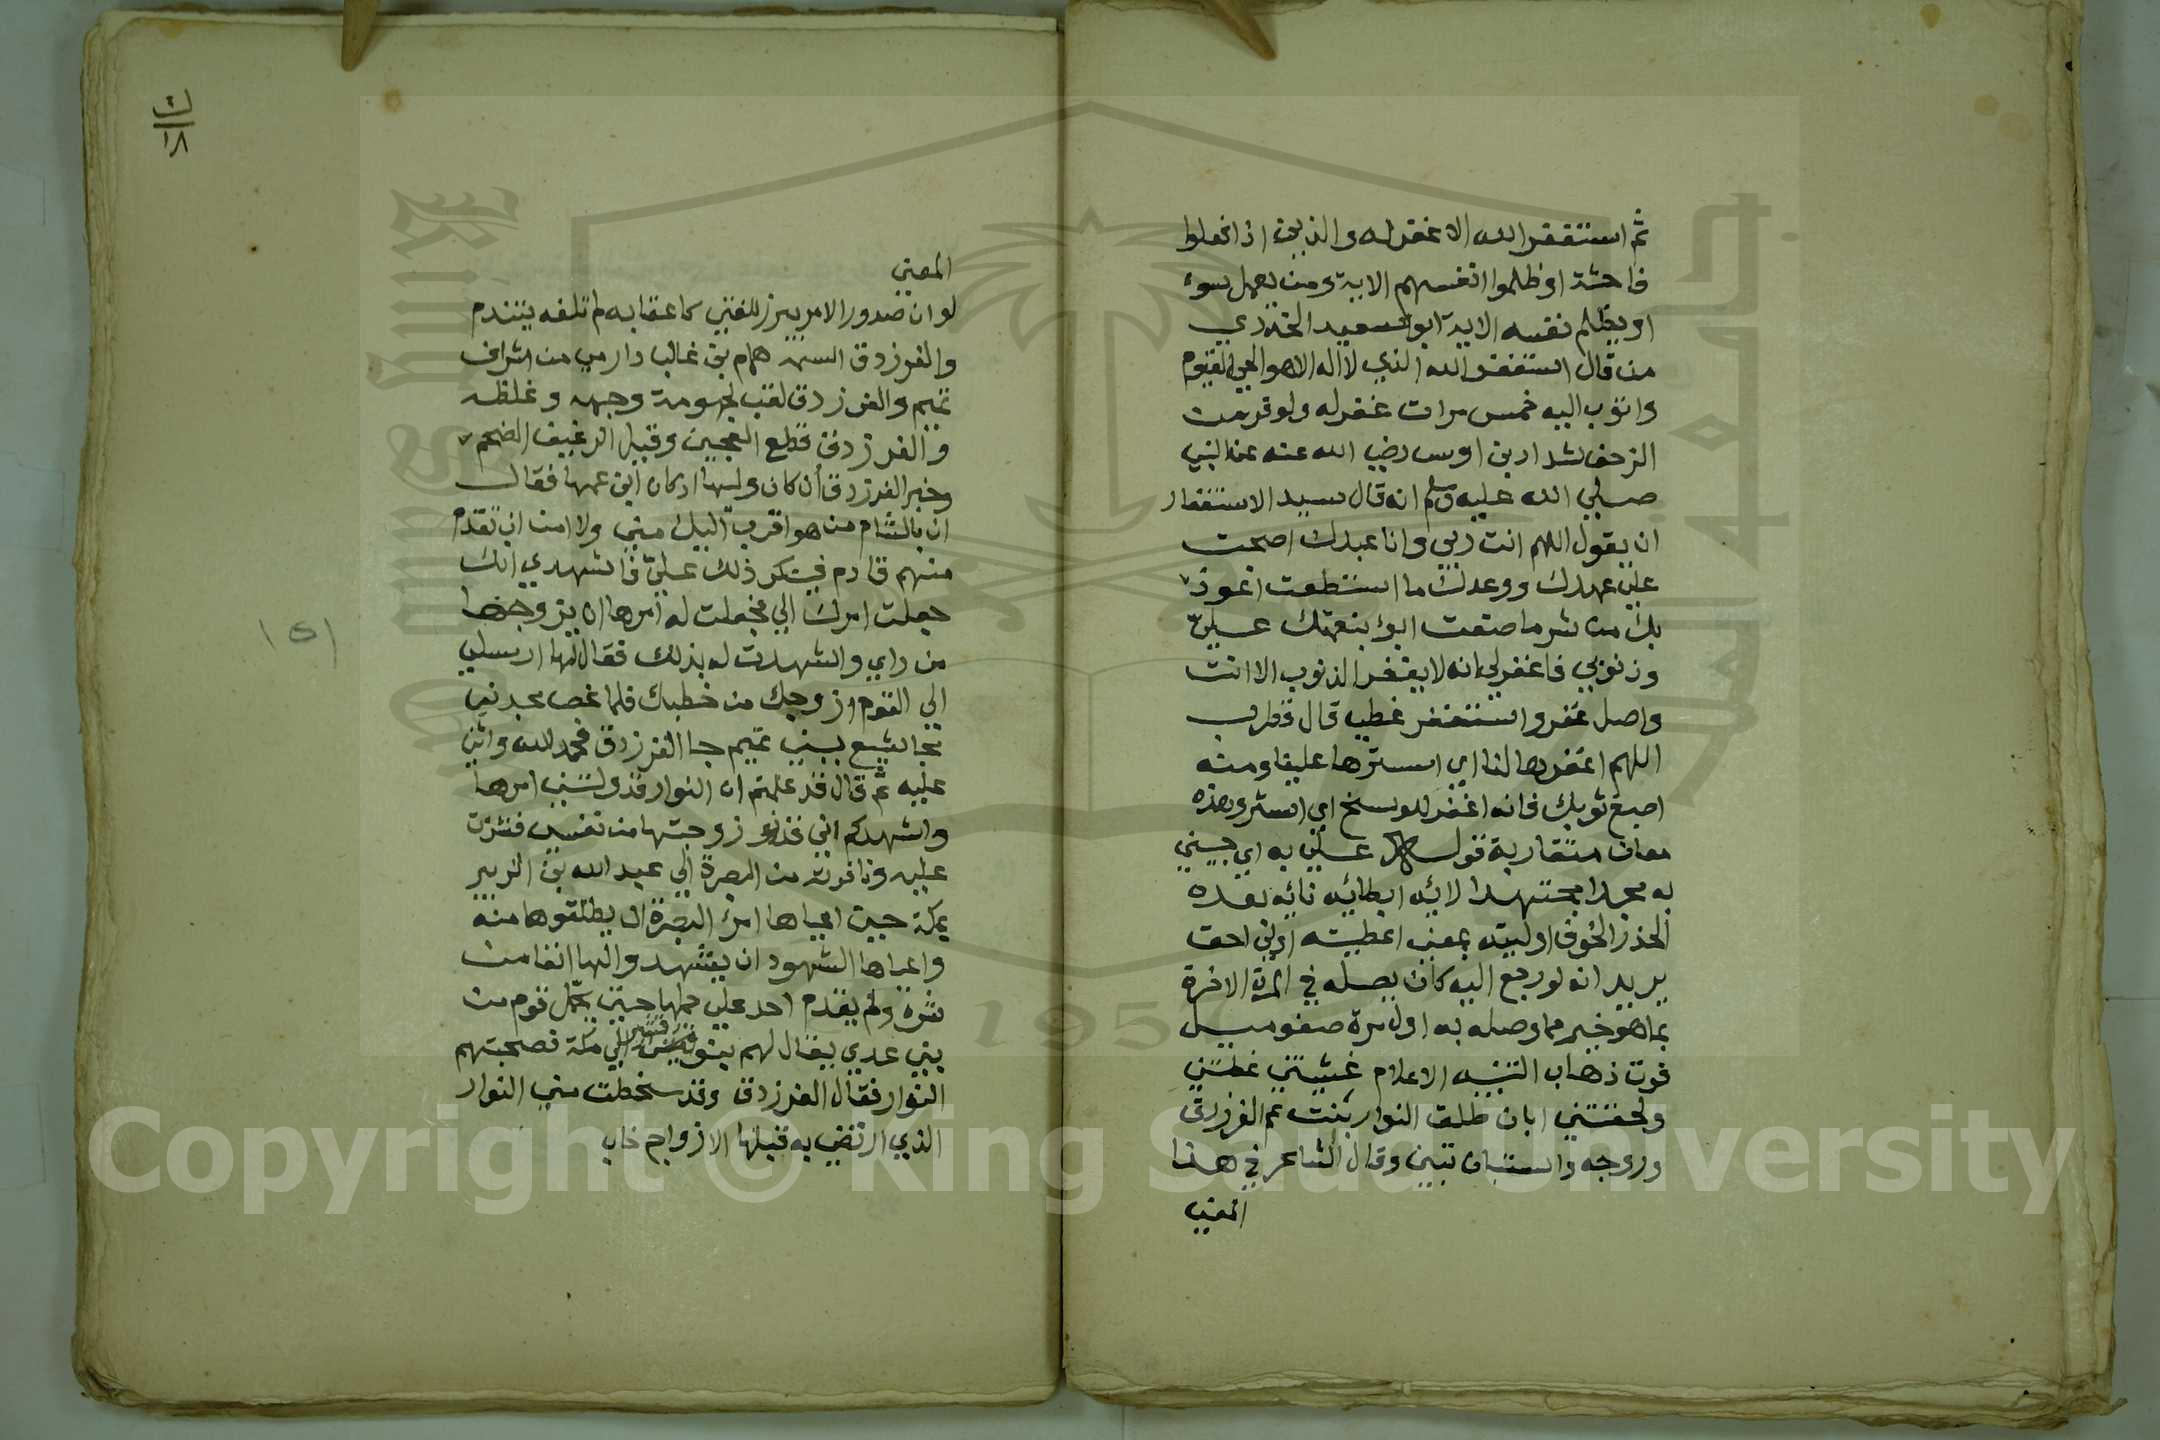 ثم استغفر الله الا غفر له والذين اذا فعلوا
فاحشة او ظلموا انفسهم الاية ومن يعمل سوء
او يظلم نفسه الاية ابو سعيد الخدري
من قال استغفر الله الذي لا اله الا هو الحي القيوم
واتوب اليه خمس مرات غفر له ولو فر من
الزحف شداد بن اوس رضي الله عنه عن النبي
صلي الله عليه وسلم انه قال سيد الاستغفار
ان يقول اللهم انت ربي وانا عبدك اصبحت
علي عهدك ووعدك ما استطعت اعوذ
بك من شر ما صنعت ابوء بنعمتك علي
وذنوبي فاغفر لي انه لا يغفر الذنوب الا انت
واصل غفر واستغفر غطي قال قطرب
اللهم اغفرها لنا اي استرها علينا ومنه
اصبغ ثوبك فانه اغفر للوسخ اي استر وهذه
معان متقاربة قوله علي به اي جيني
به مجدا مجتهدا لايه ابطائه نائه بعده
الحذر الخوف اوليته بمعني اعطيته احق
يريد انه لو رجع اليه كان يصله في المرة الاخرة
بما هو خير مما وصله به اول مرة صغو ميل
فوت ذهاب التنبيه الاعلام غشيتني غطتني
ولحقتني ابان طلق النوار بنت عم الفرزدق
وزوجه واستبان تبين وقال الشاعر في هذا
المعني
المعني
لو ان صدور الامر يبرز للفتي كاعقابه لم تلفه يتندم
والفرزدق اسمه همام بن غالب دارمي من اشراف
تميم والفرزدق لقب لجهومة وجهه وغلظه
والفرزدق قطع العجين وقيل الرغيف الضخم
وخبر الفرزدق أن كان وليها اذ كان ابن عمها فقالت
ان بالشام من هو اقرب اليك مني ولا امن ان يقدم
منهم قادم فينكر ذلك علي فاشهدي انك
جعلت امرك الي فجعلت له امرها ان يزوجها
من راي واشهدت له بذلك فقال لها ارسلي
الي القوم ازوجك من خطبك فلما غص مسجد بني
مجاشع ببني تميم جا الفرزدق فحمد الله واثني
عليه ثم قال قد علمتم ان النوار قد ولتني امرها
واشهدكم اني قد زوجتها من نفسي فنشزت
عليه ونافرته من البصرة الي عبد الله بن الزبير
بمكة حين اعياها امرء البصرة ان يطلقوها منه
واعياها الشهود ان يشهدوا لها اتقا من
شره ولم يقدم احد علي حملها حتي تحمل قوم من
بني عدي يقال لهم بنو الي مكة فصحبتهم
النوار فقال الفرزدق وقد سخطت مني النوار
الذي ارتضي به قبلها الازواج خاب
ك
١٨
١٥١
Copyright © King Saud University
King Saud University
جامعة الملك سعود
1957